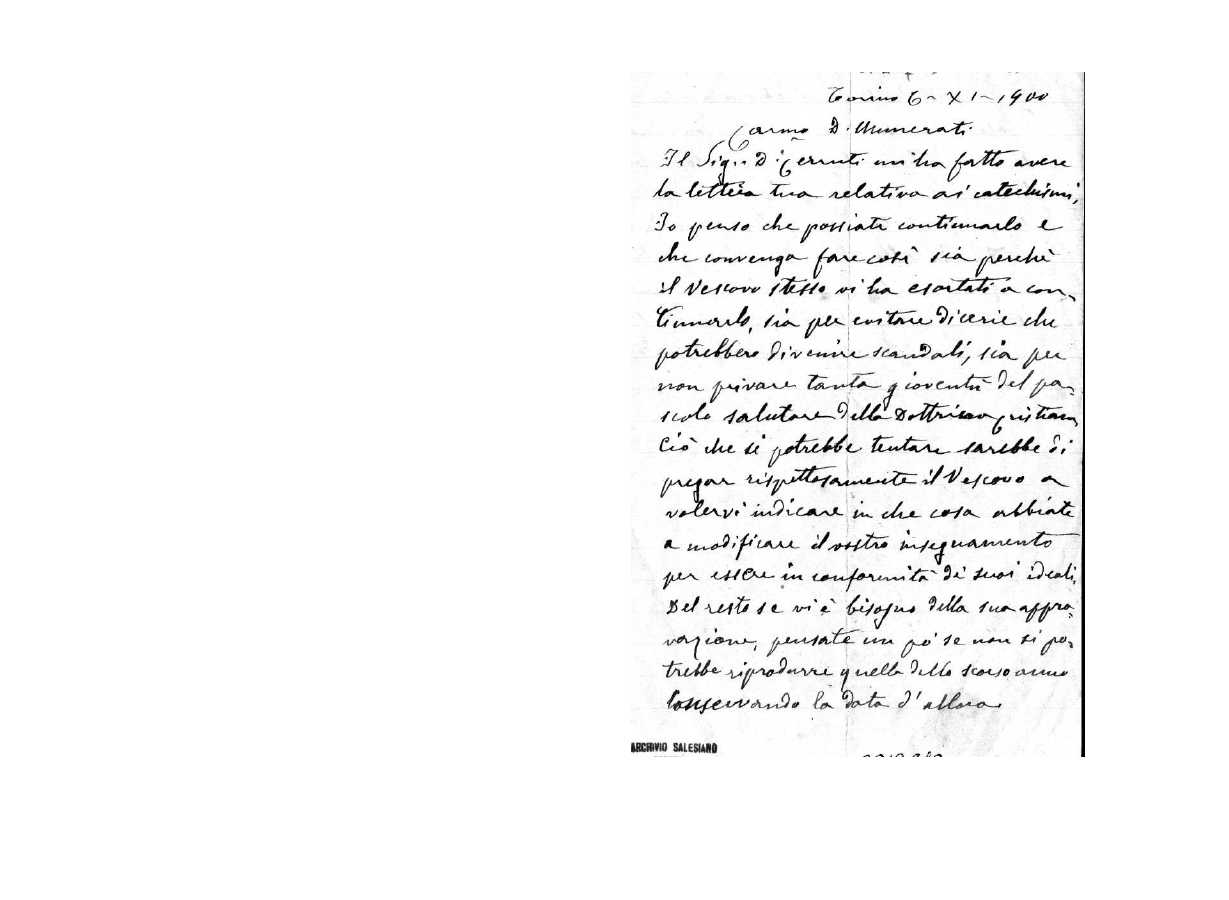 Torino 6 - XI - 1900
Carmo D. Munerati
Il Sig. D. Cerruti mi ha fatto avere
la lettera tua relativa ai catechismi,
Io penso che possiate continuarlo e
che convenga fare così sia perchè
il Vescovo stesso vi ha esortati a con-
tinuarlo, sia per evitare dicerie che
potrebbero divenire scandali, sia per
non privare tanta gioventù del pa-
scolo salutare della Dottrina Cristiana
Ciò che si potrebbe tentare sarebbe di
pregar rispettosamente il Vescovo a
volervi indicare in che cosa abbiate
a modificare il vostro insegnamento
per essere in conformità de' suoi ideali.
Del resto se vi è bisogno della sua appro-
vazione, pensate un po' se non si po-
trebbe riprodurre quella dello scorso anno
conservando la data d'allora.
ARCHIVIO SALESIANO